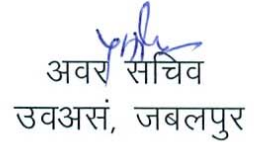 अवर सचिव
उवअसं, जबलपुर